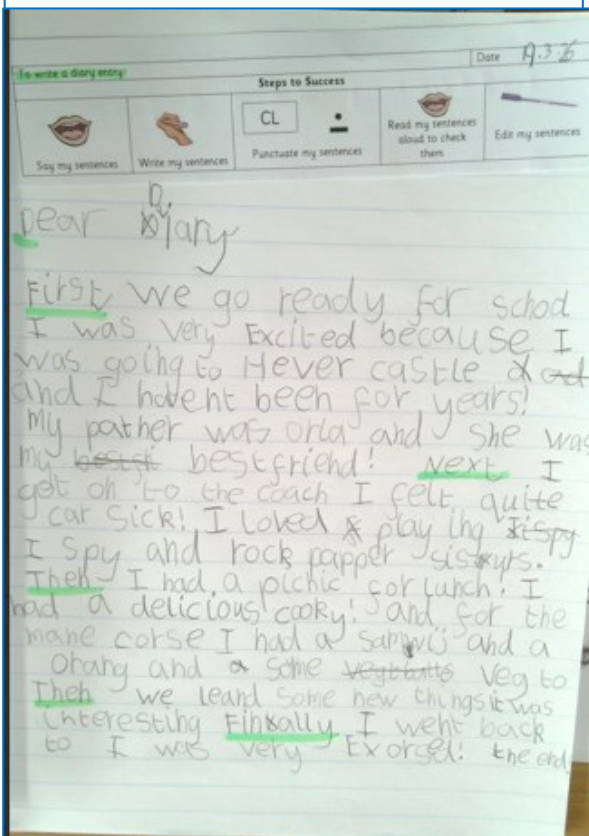 Date 19.3.26
To write a diary entry
Steps to Success
CL
Say my sentences
Write my sentences
Punctuate my sentences
Read my sentences aloud to check them
Edit my sentences
Dear Diary
First we go ready for school
I was very Excited because I
was going to Hever castle and
and I havent been for years!
My pather was orla and she was
my bestfriend! Next I
got on to the coach I felt quite
car sick! I Loved playing
I spy and rock papper siskurs.
Then I had a picnic for lunch. I
had a delicious cooky! and for the
mane corse I had a samwij and a
orang and some veg to
Then we leand some new things it was
interesting Finally I went back
to I was very Exorsed! the end